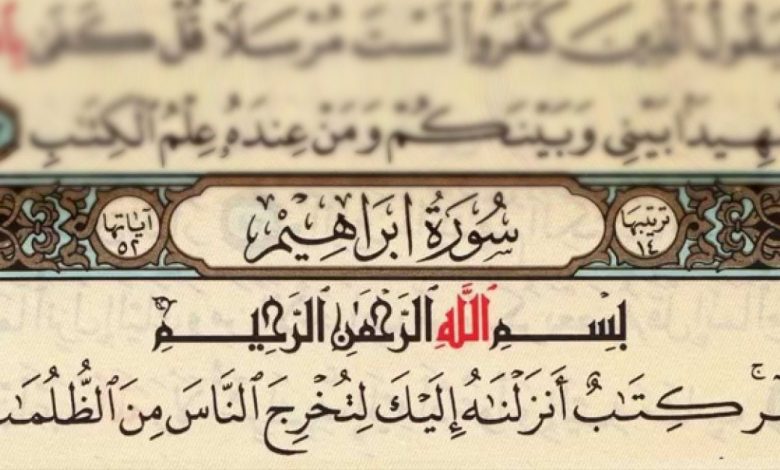 ٱلَّذِينَ كَفَرُواْ لَسْتَ مُرْسَلًا قُلْ كَفَىٰ
هِيدًا بَيْنِى وَبَيْنَكُمْ وَمَنْ عِندَهُۥ عِلْمُ ٱلْكِتَٰبِ
ترتيبها ١٤ سُورَةُ ابْرَاهِيْمَ آياتها ٥٢
بِسْمِ ٱللَّهِ ٱلرَّحْمَٰنِ ٱلرَّحِيمِ
ر ۚ كِتَٰبٌ أَنزَلْنَٰهُ إِلَيْكَ لِتُخْرِجَ ٱلنَّاسَ مِنَ ٱلظُّلُمَٰتِ